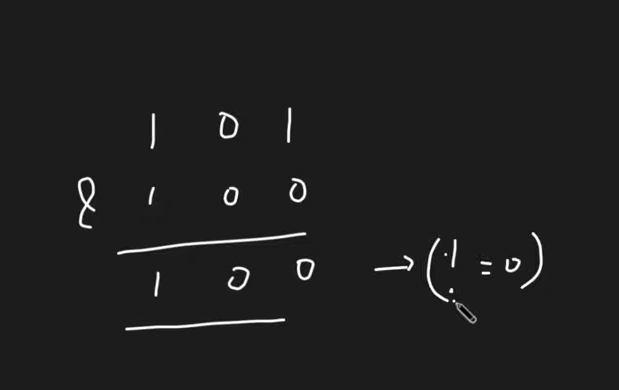 1 0 1
& 1 0 0
1 0 0 → (! = 0)